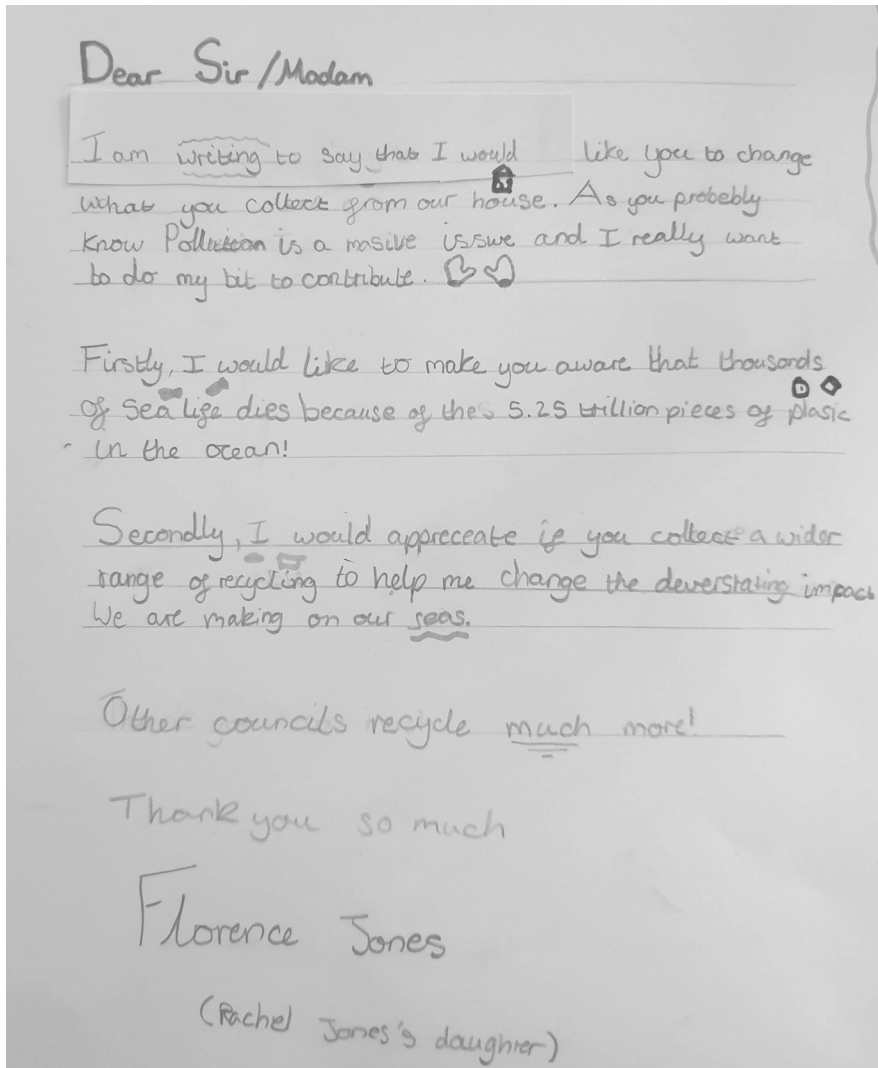 Dear Sir/Madam
I am writing to say that I would like you to change
what you collect from our house. As you probebly
know Pollution is a masive issue and I really want
to do my bit to contribute.
Firstly, I would like to make you aware that thousands
of sea life dies because of the 5.25 trillion pieces of plasic
in the ocean!
Secondly, I would appreceate if you collect a wider
range of recycling to help me change the deverstating impact
We are making on our seas.
Other councils recycle much more!
Thank you so much
Florence Jones
(Rachel Jones's daughter)